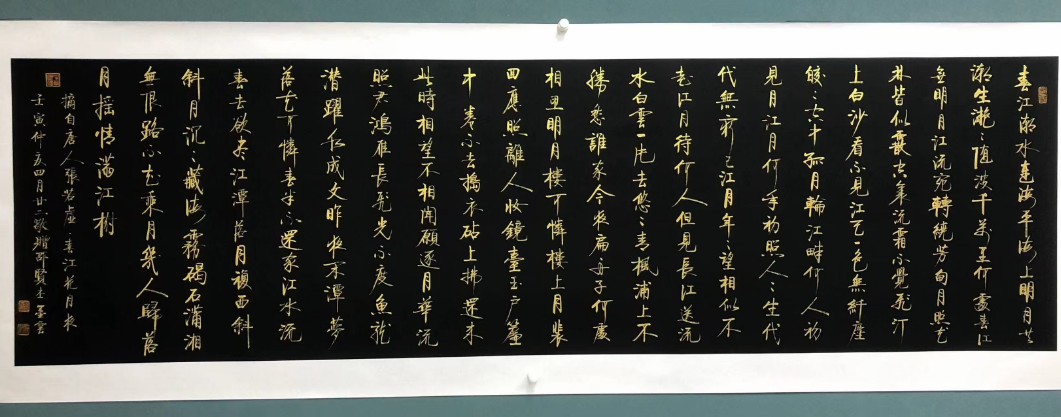 春江潮水連海平海上明月共
潮生灔〻隨波千萬里何處春江
無明月江流宛轉繞芳甸月照花
林皆似霰空裏流霜不覺飛汀
上白沙看不見江天一色無纖塵
皎〻空中孤月輪江畔何人初
見月江月何年初照人〻生代
代無窮已江月年〻望相似不
知江月待何人但見長江送流
水白雲一片去悠〻青楓浦上不
勝愁誰家今夜扁舟子何處
相思明月樓可憐樓上月裴
回應照離人妝鏡臺玉戶簾
中卷不去擣衣砧上拂還來
此時相望不相聞願逐月華流
照君鴻雁長飛光不度魚龍
潛躍水成文昨夜閑潭夢
落花可憐春半不還家江水流
春去欲盡江潭落月復西斜
斜月沉〻藏海霧碣石瀟湘
無限路不知乘月幾人歸落
月搖情滿江樹
摘自唐人張若虛春江花月夜
壬寅仲夏四月廿二敬贈賢墨雲